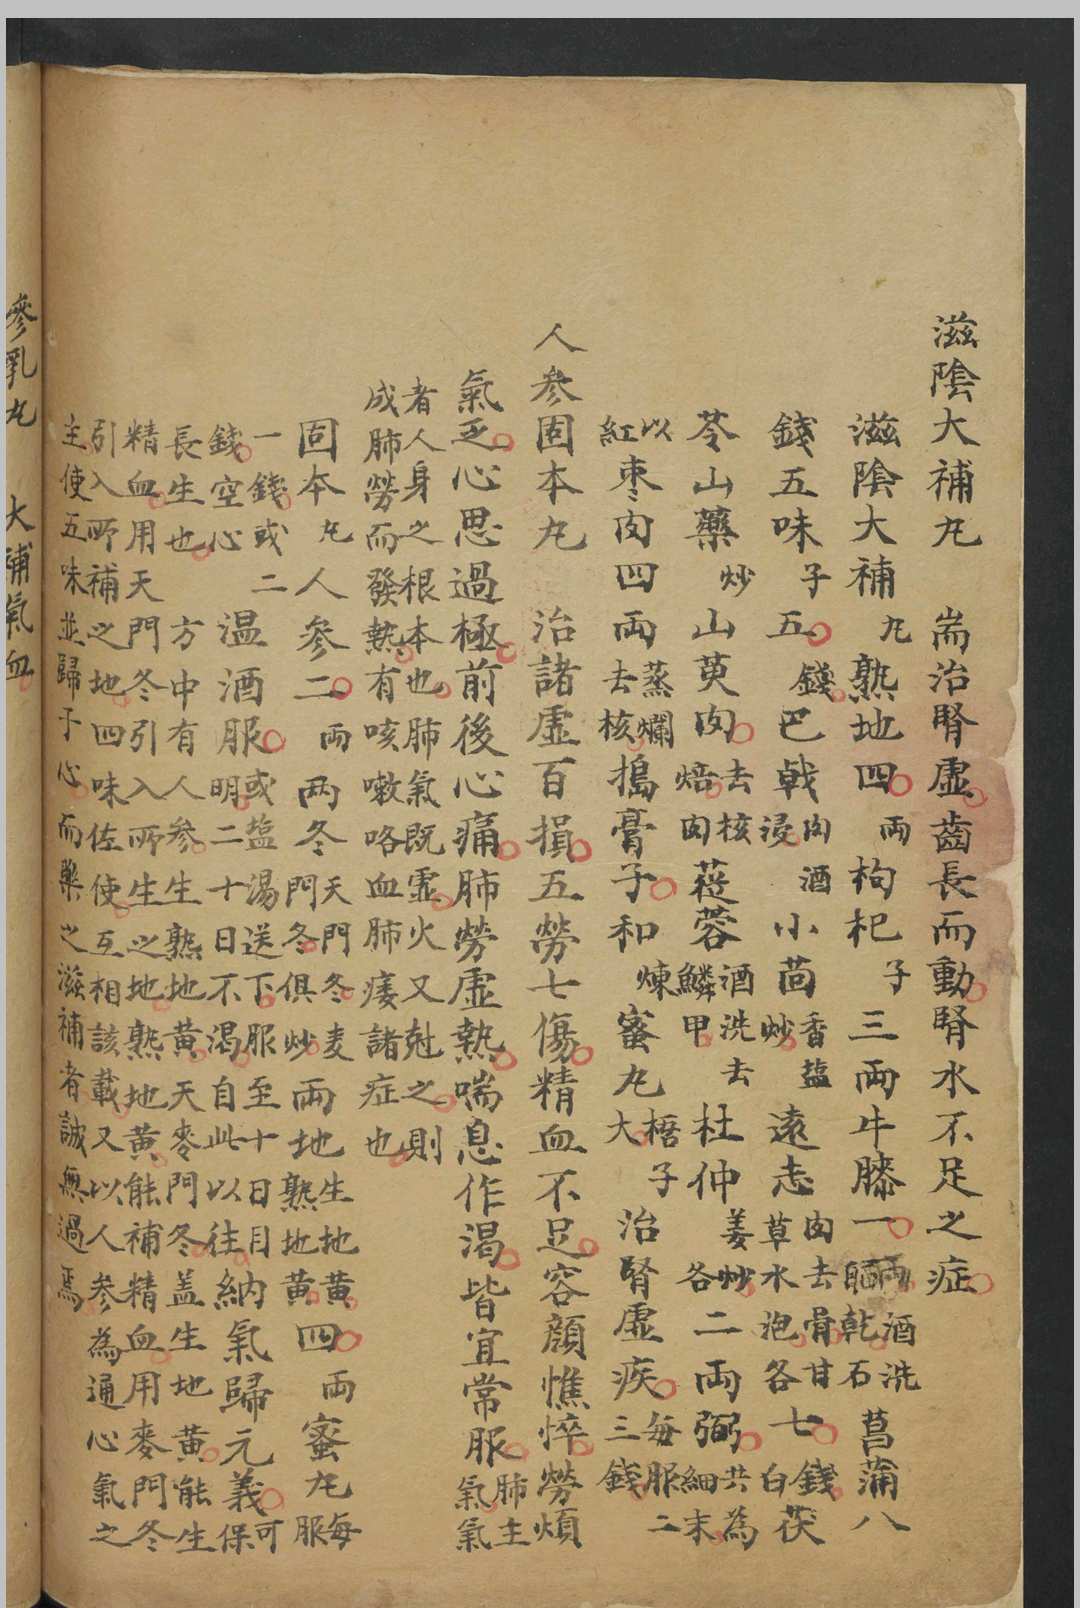 滋陰大補丸　耑治腎虛齒長而動腎水不足之症
滋陰大補丸熟地四兩枸杞子三兩牛膝一兩酒洗晒乾石菖蒲八
錢五味子五錢巴戟肉酒浸小茴香盐炒遠志肉去骨甘草水泡各七錢白茯
苓山藥炒山萸肉去核焙肉蓯蓉酒洗去鱗甲杜仲姜炒各二兩弼共為細末
以紅枣肉四兩蒸爛去核搗膏子和煉蜜丸梧子大治腎虛疾每服二三錢
人參固本丸　治諸虛百損五勞七傷精血不足容顏憔悴勞煩
氣乏心思過極前後心痛肺勞虛熱喘息作渴皆宜常服肺主氣氣
者人身之根本也肺氣既虛火又尅之則
成肺勞而發熱有咳嗽咯血肺痿諸症也
固本丸人參二兩两冬天門冬麦門冬俱炒兩地生地黄熟地黄四兩蜜丸每服
一錢或二錢空心温酒服或盐湯送下服至十日目明二十日不渴自此以往納氣歸元義可保
長生也　方中有人參生熟地黄天麥門冬盖生地黄能生
精血用天門冬引入所生之地熟地黄能補精血用麥門冬
引入所補之地四味佐使互相該載又以人參為通心氣之
主使五味並歸于心而藥之滋補者誠無過焉
參乳丸　大補氣血